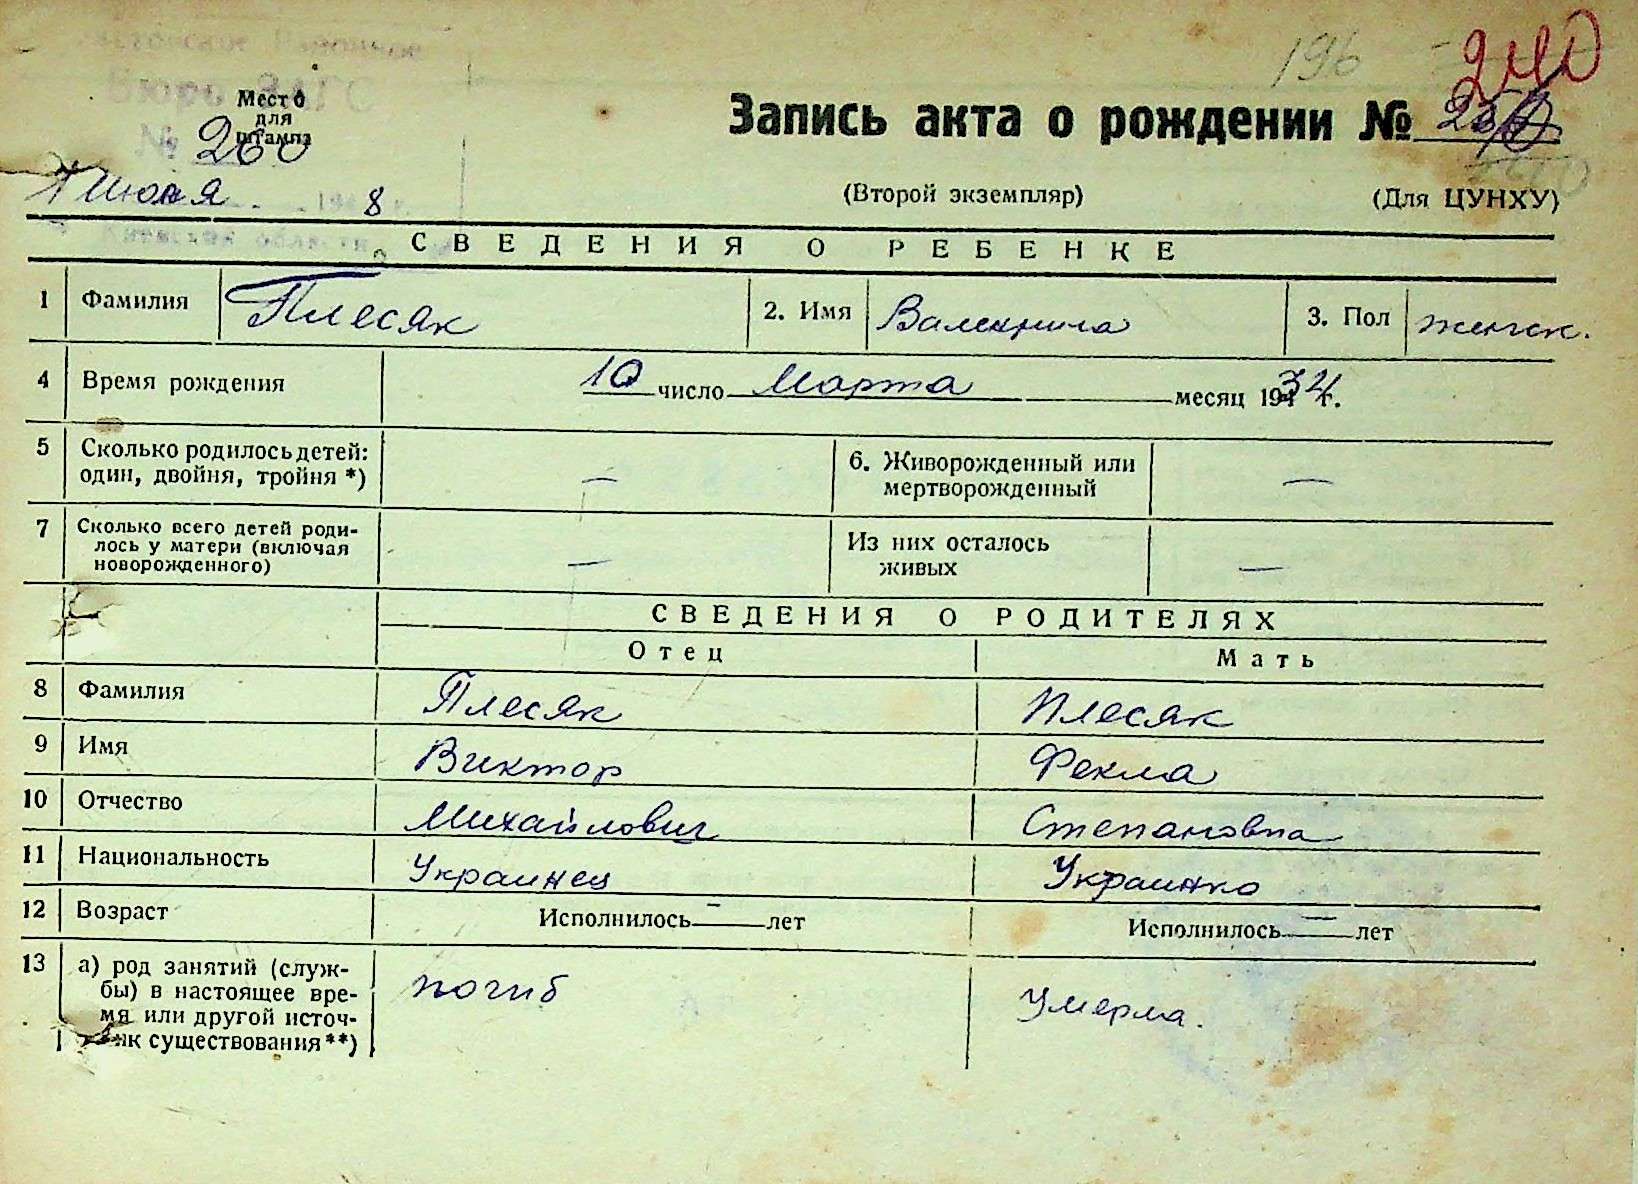 Бюро ЗАГС
Место
для
штампа
№ 260
Июня 194 8 г.
Киевская области
196
240
Запись акта о рождении №
(Второй экземпляр)
(Для ЦУНХУ)
СВЕДЕНИЯ О РЕБЕНКЕ
1 Фамилия Плесяк 2. Имя Валентина 3. Пол женск.
4 Время рождения 10 число Марта месяц 1934 г.
5 Сколько родилось детей: один, двойня, тройня *) — 6. Живорожденный или мертворожденный —
7 Сколько всего детей роди-
лось у матери (включая
новорожденного) — Из них осталось живых —
СВЕДЕНИЯ О РОДИТЕЛЯХ
Отец Мать
8 Фамилия Плесяк Плесяк
9 Имя Виктор Фекла
10 Отчество Михайлович Степановна
11 Национальность Украинец Украинка
12 Возраст Исполнилось — лет Исполнилось — лет
13 а) род занятий (служ-
бы) в настоящее вре-
мя или другой источ-
ник существования **) погиб Умерла.